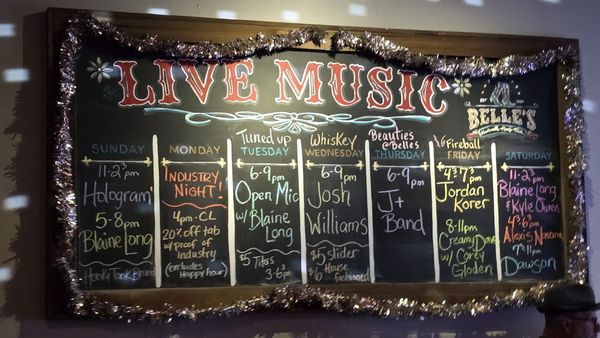 LIVE MUSIC
BELLE'S
SUNDAY
11-2pm
Hologram
5-8pm
Blaine Long
Honky Tonk Brunch
MONDAY
INDUSTRY
NIGHT!
4pm-CL
20% off tab
w/ proof of
Industry
(excludes happy hour)
Tuned up
TUESDAY
6-9pm
Open Mic
w/ Blaine
Long
$5 Tito's
3-6
Whiskey
WEDNESDAY
6-9pm
Josh
Williams
$5 slider
$6 House
old fashioned
Beauties
@Belles
THURSDAY
6-9pm
J+
Band
Fireball
FRIDAY
Jordan
Korer
8-11pm
Creamy Dave
w/ Corey
Gloden
SATURDAY
11-2pm
Blaine Long
& Kyle Owen
Alexis Navarro
7-11pm
Dawson